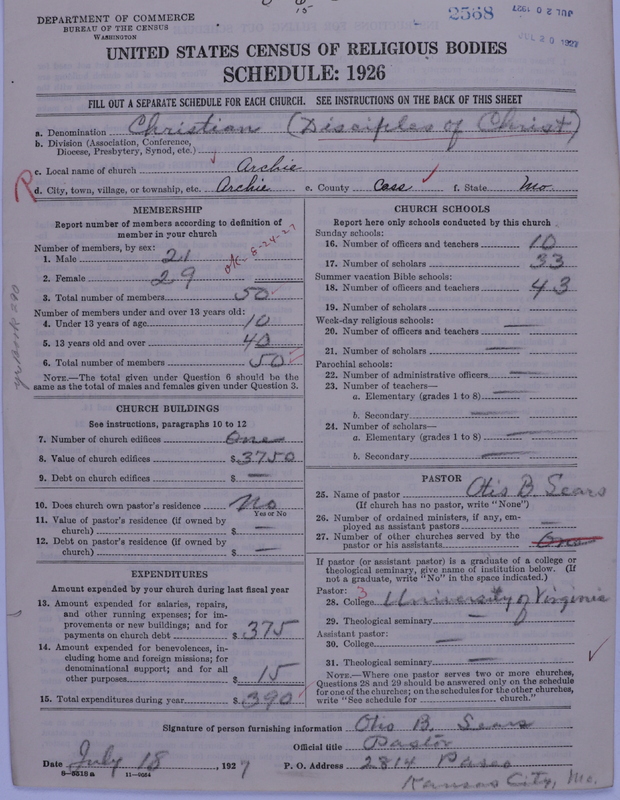 15
DEPARTMENT OF COMMERCE
BUREAU OF THE CENSUS
WASHINGTON
2568
JUL 20 1927
JUL 20 1927
UNITED STATES CENSUS OF RELIGIOUS BODIES
SCHEDULE: 1926
FILL OUT A SEPARATE SCHEDULE FOR EACH CHURCH. SEE INSTRUCTIONS ON THE BACK OF THIS SHEET
a. Denomination Christian (Disciples of Christ)
b. Division (Association, Conference,
Diocese, Presbytery, Synod, etc.)
c. Local name of church Archie
d. City, town, village, or township, etc. Archie e. County Cass f. State Mo
MEMBERSHIP
Report number of members according to definition of
member in your church
Number of members, by sex:
1. Male 21
2. Female 29
OK-8-24-27
3. Total number of members 50
Number of members under and over 13 years old:
4. Under 13 years of age 10
5. 13 years old and over 40
6. Total number of members 50
NOTE.—The total given under Question 6 should be the
same as the total of males and females given under Question 3.
CHURCH BUILDINGS
See instructions, paragraphs 10 to 12
7. Number of church edifices One
8. Value of church edifices $ 3750
9. Debt on church edifices $ —
10. Does church own pastor's residence No
Yes or No
11. Value of pastor's residence (if owned by
church) $ —
12. Debt on pastor's residence (if owned by
church) $ —
EXPENDITURES
Amount expended by your church during last fiscal year
13. Amount expended for salaries, repairs,
and other running expenses; for im-
provements or new buildings; and for
payments on church debt $ 375
14. Amount expended for benevolences, in-
cluding home and foreign missions; for
denominational support; and for all
other purposes $ 15
15. Total expenditures during year $ 390
CHURCH SCHOOLS
Report here only schools conducted by this church
Sunday schools:
16. Number of officers and teachers 10
17. Number of scholars 33
Summer vacation Bible schools:
18. Number of officers and teachers 43
19. Number of scholars
Week-day religious schools:
20. Number of officers and teachers —
21. Number of scholars —
Parochial schools:
22. Number of administrative officers —
23. Number of teachers—
a. Elementary (grades 1 to 8) —
b. Secondary —
24. Number of scholars—
a. Elementary (grades 1 to 8) —
b. Secondary —
PASTOR
25. Name of pastor Otis B. Sears
(If church has no pastor, write "None")
26. Number of ordained ministers, if any, em-
ployed as assistant pastors —
27. Number of other churches served by the
pastor or his assistants One
If pastor (or assistant pastor) is a graduate of a college or
theological seminary, give name of institution below. (If
not a graduate, write "No" in the space indicated.)
Pastor: 3
28. College University of Virginia
29. Theological seminary —
Assistant pastor:
30. College —
31. Theological seminary —
NOTE.—Where one pastor serves two or more churches,
Questions 28 and 29 should be answered only on the schedule
for one of the churches; on the schedules for the other churches,
write "See schedule for ________ church."
Signature of person furnishing information Otis B. Sears
Official title Pastor
Date July 18, 1927 P. O. Address 2814 Paseo
8—5518a 11—9054
Kansas City, Mo.